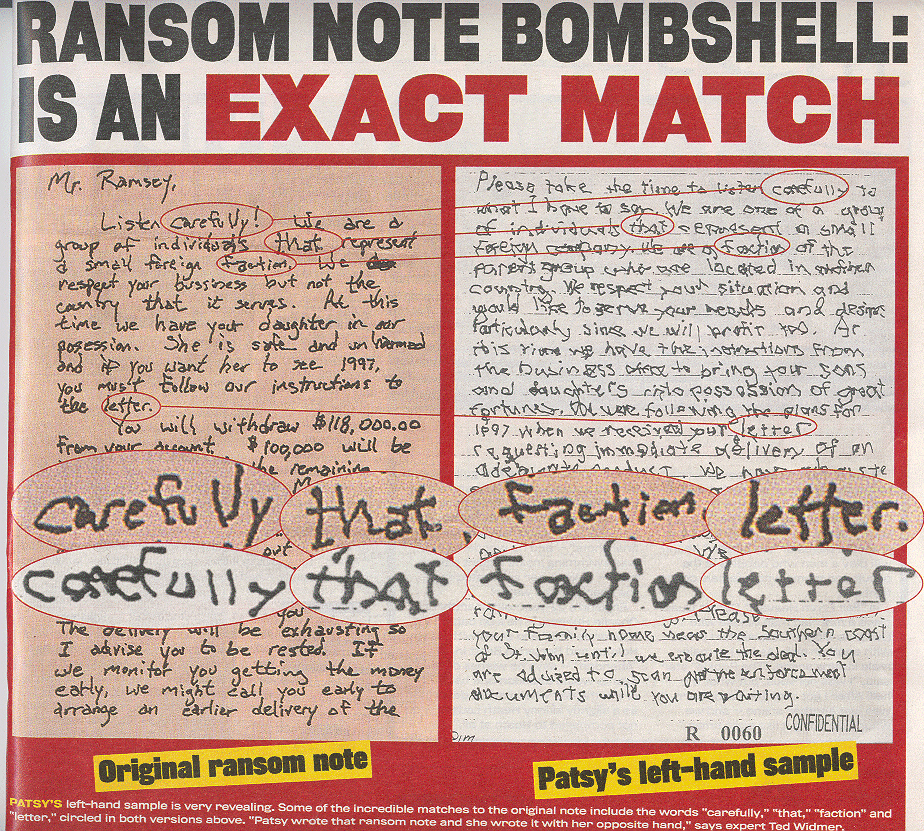 RANSOM NOTE BOMBSHELL:
IS AN EXACT MATCH
Mr. Ramsey,
Listen carefully! We are a
group of individuals that represent
a small foreign faction. We
respect your bussiness but not the
country that it serves. At this
time we have your daughter in our
posession. She is safe and unharmed
and if you want her to see 1997,
you must follow our instructions to
the letter.
You will withdraw $118,000.00
from your account. $100,000 will be
the remaining
out
you
The delivery will be exhausting so
I advise you to be rested. If
we monitor you getting the money
early, we might call you early to
arrange an earlier delivery of the
Please take the time to listen carefully to
what I have to say. We are one of a group
of individuals that represent a small
foreign company. We are a faction of the
parent group who are located in another
country. We respect your situation and
would like to serve your needs and designs
particularly since we will profit too. At
this time we have the instructions from
the business office to bring your sons
and daughters into possession of great
fortunes. We were following the plans for
1997 when we received your letter
requesting immediate delivery of an
product. We have
carefully that faction. letter.
carefully that faction letter
Please
your family home near the Southern coast
of St. John until we execute the deal. You
are advised to scan the enforcement
documents while you are waiting.
R 0060 CONFIDENTIAL
Original ransom note
Patsy's left-hand sample
PATSY'S left-hand sample is very revealing. Some of the incredible matches to the original note include the words "carefully," "that," "faction" and
"letter," circled in both versions above. "Patsy wrote that ransom note and she wrote it with her opposite hand," says expert Ted Widmer.